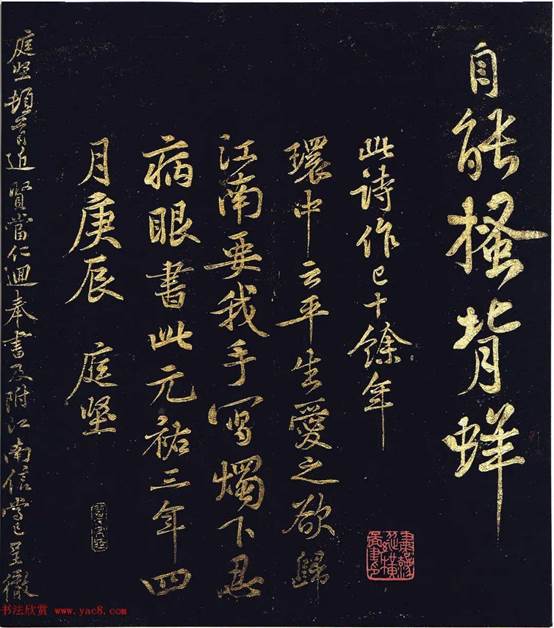 自能搔背蛘
此诗作已十餘年
環中云平生愛之欲歸
江南要我手写燭下忍
病眼書此元祐三年四
月庚辰 庭堅
庭堅頓首近賢當仁逥奉書及附江南信當已呈徹
书法欣赏 www.yac8.com